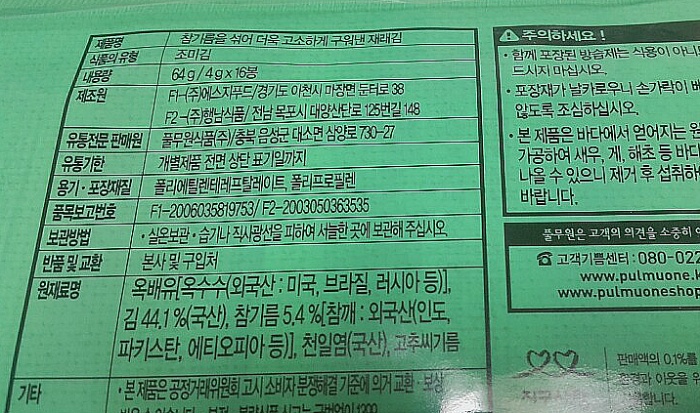 제품명 참기름을 섞어 더욱 고소하게 구워낸 재래김
식품의 유형 조미김
내용량 64g / 4g x 16봉
제조원 F1-(주)에스지푸드/경기도 이천시 마장면 둔터로 38
F2-(주)행남식품/ 전남 목포시 대양산단로 125번길 148
유통전문 판매원 풀무원식품(주)/충북 음성군 대소면 삼양로 730-27
유통기한 개별제품 전면 상단 표기일까지
용기·포장재질 폴리에틸렌테레프탈레이트, 폴리프로필렌
품목보고번호 F1-2006035819753/ F2-2003050363535
보관방법 ·실온보관·습기나 직사광선을 피하여 서늘한 곳에 보관해 주십시오.
반품 및 교환 본사 및 구입처
원재료명 옥배유[옥수수(외국산 : 미국, 브라질, 러시아 등)],
김 44.1%(국산), 참기름 5.4%[참깨 : 외국산(인도,
파키스탄, 에티오피아 등)], 천일염(국산), 고추씨기름
기타 ·본 제품은 공정거래위원회 고시 소비자 분쟁해결 기준에 의거 교환·보상
주의하세요!
·함께 포장된 방습제는 식용이 아니
드시지 마십시오.
·포장재가 날카로우니 손가락이 베
않도록 조심하십시오.
·본 제품은 바다에서 얻어지는 원
가공하여 새우, 게, 해초 등 바다
나올 수 있으니 제거 후 섭취하
바랍니다.
풀무원은 고객의 의견을 소중히 여
고객기쁨센터 : 080-022
www.pulmuone.k
www.pulmuoneshop
판매액의 0.1%를
환경과 이웃을 위